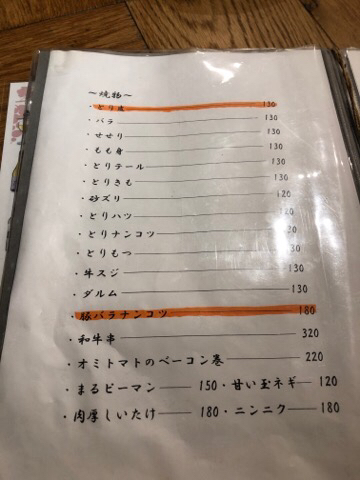 ～焼物～
・とり皮 130
・バラ 130
・せせり 130
・もも身 130
・とりテール 130
・とりきも 130
・砂ズリ 120
・とりハツ 120
・とりナンコツ 30
・とりもつ 30
・牛スジ 130
・ダルム 130
・豚バラナンコツ 180
・和牛串 320
・オミトマトのベーコン巻 220
・まるピーマン 150・甘い玉ネギ 120
・肉厚しいたけ 180・ニンニク 180